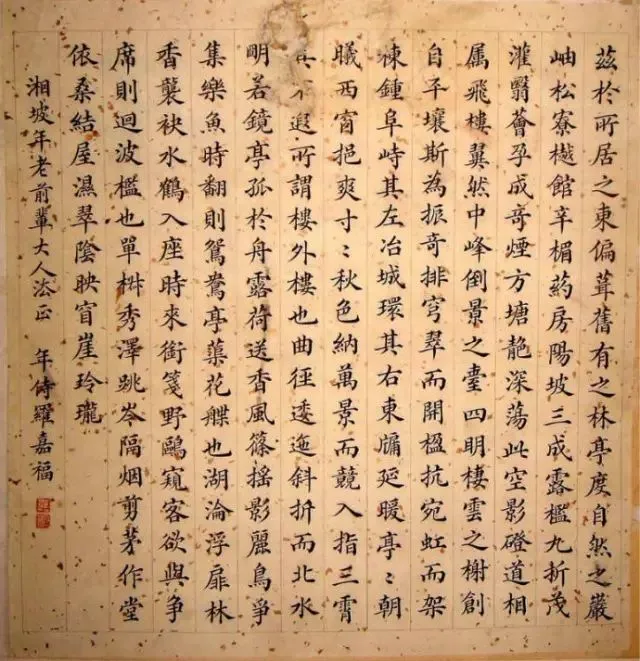 茲於所居之東偏葺舊有之林亭度自然之巖
岫松寮樾館辛楣葯房陽坡三成露檻九折茂
灌翳薈孕成奇煙方塘艷深蕩此空影磴道相
属飛樓翼然中峰倒景之臺四明棲雲之榭創
自平壤斯為振奇排穹翠而開楹抗宛虹而架
棟鍾阜峙其左冶城環其右東牖延暖亭〻朝
曦西窗挹爽寸〻秋色納萬景而競入指三霄
不遐所謂樓外樓也曲徑逶迤斜折而北水
明若鏡亭孤於舟露荷送香風篠搖影麗鳥爭
集樂魚時翻則鴛鴦亭蕖花艓也湖淪浮扉林
香襲袂水鶴入座時來銜箋野鷗窺客欲與爭
席則迴波檻也單椒秀澤跳岑隔烟剪茅作堂
依桑結屋濕翠陰映窗崖玲瓏
湘坡年老前輩大人法正 年侍羅嘉福